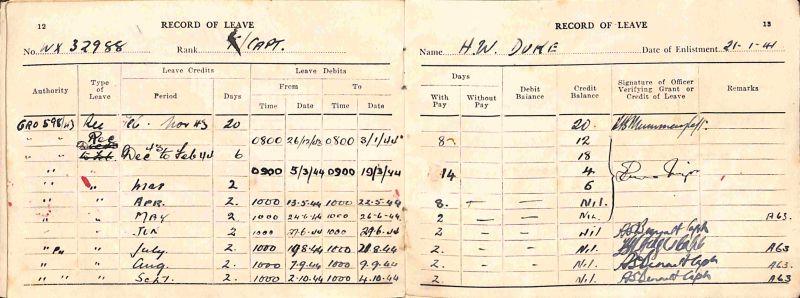 12 RECORD OF LEAVE
No. NX 32988 Rank T/CAPT.
Authority Type of Leave Leave Credits Leave Debits
Period Days From To
Time Date Time Date
GRO 598/43 Rec to Nov 43 20
" " Rec 0800 26/12/43 0800 3/1/44
" " Dec 43 to Feb 44 6
" " " 0900 5/3/44 0900 19/3/44
" " " Mar 2
" " " APR. 2 1000 13.5.44 1000 22.5.44
" " " MAY 2 1000 24.6.44 1000 26.6.44
" " JUN 2 1000 27.6.44 1000 29.6.44
" " July 2. 1000 1000
" " " Aug. 2. 1000 7.9.44 1000 9.9.44
" " " Sept. 2. 1000 2.10.44 1000 4.10.44
RECORD OF LEAVE 13
Name H.W. DUKE Date of Enlistment 21-1-41
Days Debit Balance Credit Balance Signature of Officer Verifying Grant or Credit of Leave Remarks
With Pay Without Pay
20.
8 12
18
14 4
6
8. - - Nil.
2 - - Nil. A63.
2. - - Nil Capt
2. - - Nil. Capt A63
2. - - Nil. Capt A63.
2. - - Nil. Capt A63